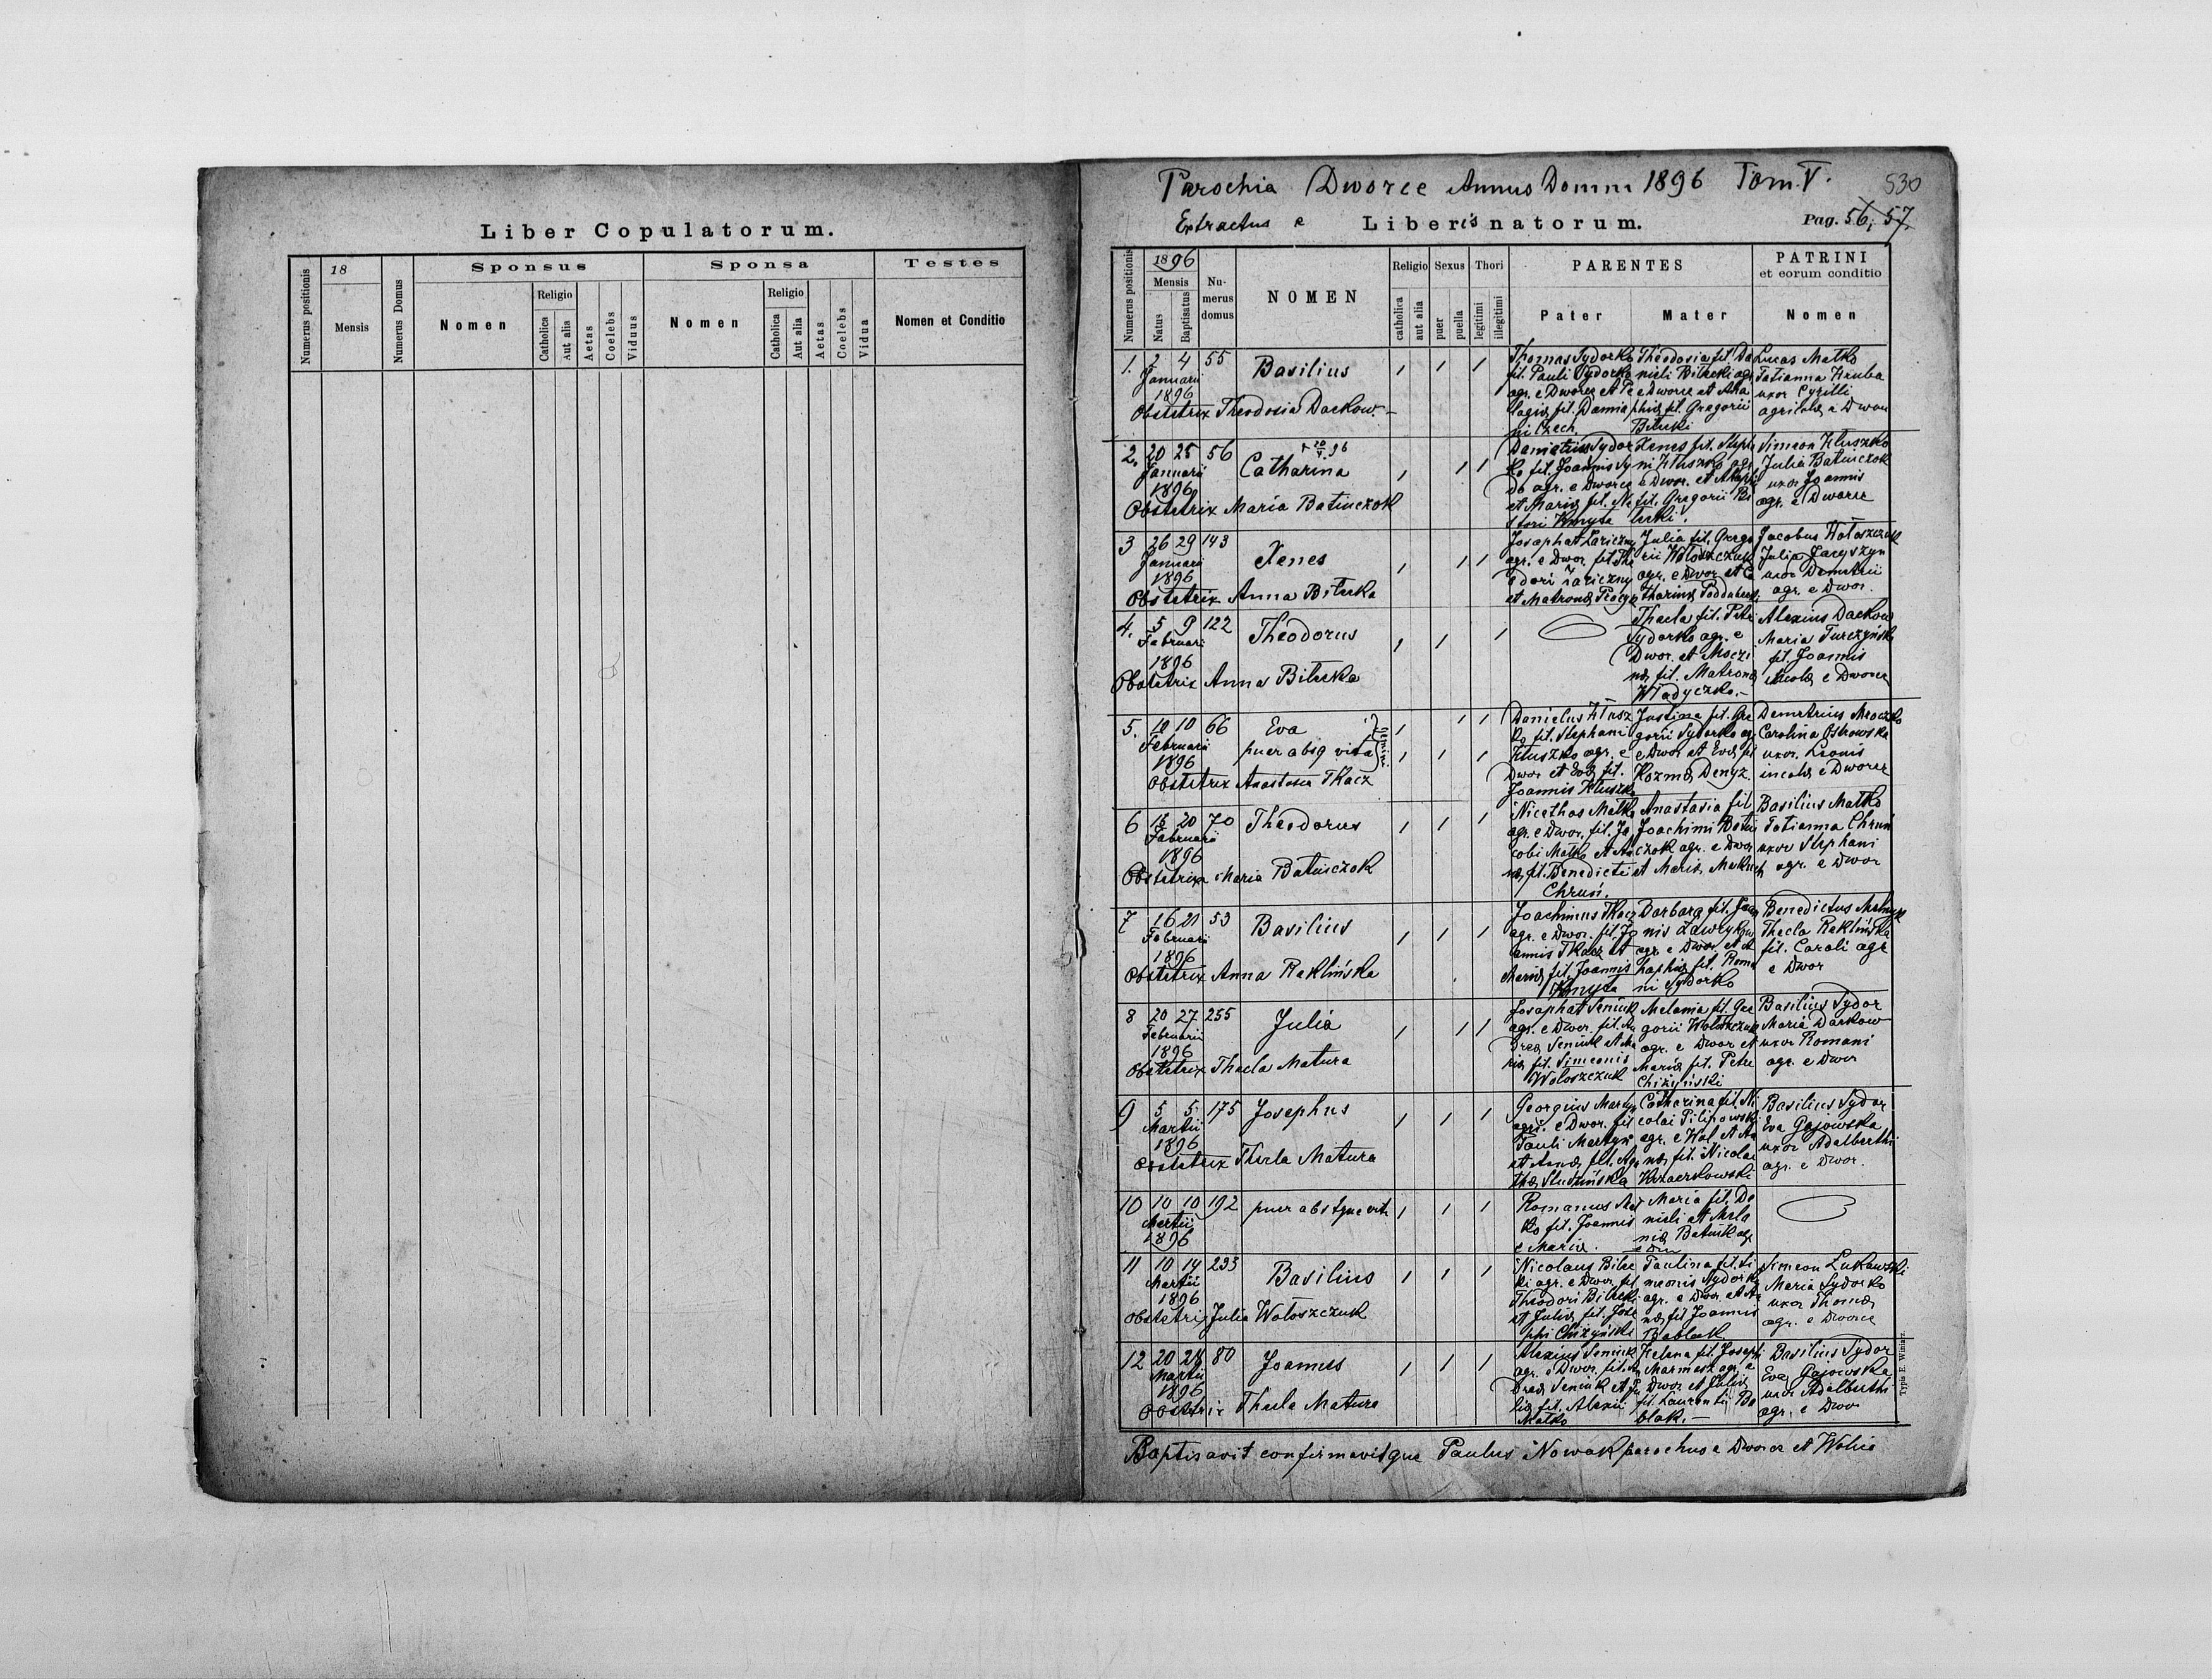 Liber Copulatorum.
Numerus positionis
18
Mensis
Numerus Domus
Sponsus
Nomen
Religio
Catholica
Aut alia
Aetas
Coelebs
Viduus
Sponsa
Nomen
Religio
Catholica
Aut alia
Aetas
Coelebs
Vidua
Testes
Nomen et Conditio
Parochia Dworce Annus Domini 1896 Tom. V. 530
Extractus e Liberis natorum. Pag. 56; 57.
Numerus positionis
1896
Mensis
Natus
Baptisatus
Numerus domus
NOMEN
Religio
catholica
aut alia
Sexus
puer
puella
Thori
legitimi
illegitimi
PARENTES
Pater
Mater
PATRINI
et eorum conditio
Nomen
1. 2 4 55 Basilius
Januarii
1896
Obstetrix Theodosia Dackow.
Thomas Sydorko
fil. Pauli Sydorko
agr. e Dworce et Pe
lagiae fil. Damia
ni Czech.
Theodosia fil. Da
nieli Bilecki agr.
e Dworce et Aha
phiae fil. Gregorii
Bilecki
Lucas Matko
Tatianna Hruba
uxor Cyrilli
2. 20 25 56 Catharina
Januarii
1896
Obstetrix Maria Batiuczok
ko fil. Joannis Sy
et Mariae fil. Ne
stori Kmyta
Xenes fil. Steph
ni Kluszko agr.
fil. Gregorii Bi
lecki.
Simeon Kluszko
Julia Batiuczok
uxor Joannis
agr. e Dworce
3 26 29 143 Xenes
Januarii
1896
Obstetrix Anna Bilecka
Josaphat Zariczny
agr. e Dwor. fil. The
odori Zariczny
Julia fil. Grego
rii Wołoszczuk
agr. e Dwor. et Ca
Jacobus Wołoszczuk
Julia
uxor Demetrii
agr. e Dwor.
4. 5 9 122 Theodorus
Februarii
1896
Obstetrix Anna Bilecka
Thecla fil. Petri
Sydorko agr. e
Dwor. et
fil. Matronae
Władyczko.
Alexius Dackow
Maria Turczyńska
fil. Joannis
incola e Dworce
5. 10 10 66 Eva
Februarii puer absq vita
1896 gemini
Obstetrix Anastasia Tkacz
Danielus Klusz
ko fil. Stephani
Kluszko agr. e
Dwor. et Evae fil.
Joannis Kluszko
Justina fil. Gre
gorii Sydorko agr.
e Dwor. et Evae fil
Kozmae Denyz.
Demetrius Mroczko
Carolina Ostrowska
uxor Leonis
incola e Dworce
6 15 20 70 Theodorus
Februarii
1896
Obstetrix Maria Batiuczok
Nicethas Matko
agr. e Dwor. fil. Ja
cobi Matko et An
nae fil. Benedicti
Chruń.
Anastasia fil.
Joachimi Batiu
czok agr. e Dwor
et Mariae
Basilius Matko
Tatianna Chruń
uxor Stephani
agr. e Dwor
7 16 21 53 Basilius
Februarii
1896
Obstetrix Anna Reklińska
Joachimus Tkacz
agr. e Dwor. fil. Jo
annis Tkacz et
Mariae fil. Joannis
Kmyta
Barbara fil. Joan
nis
agr. e Dwor. et A
haphiae fil. Roma
ni Sydorko
Benedictus Melnyk
Thecla Reklińska
fil. Caroli agr
e Dwor
8 20 27 255 Julia
Februarii
1896
Obstetrix Thecla Matura
Josaphat Seniuk
agr. e Dwor. fil. An
dreae Seniuk et Ma
riae fil. Simeonis
Wołoszczuk
Melania fil. Gre
gorii Wołoszczuk
agr. e Dwor et
Mariae fil. Petri
Chiżyński
Basilius Sydor
Maria Dackow
uxor Romani
agr. e Dwor
9 5 5 175 Josephus
Martii
1896
Obstetrix Thecla Matura
Georgius Martyn
agr. e Dwor. fil
Pauli Martyn
et Annae fil. Aga
thae
Catharina fil. Ni
colai Pilipowski
agr. e Wol. et An
nae fil. Nicolai
Basilius Sydor
Eva Gajowska
uxor Adelberthi
agr. e Dwor.
10 10 10 192 puer absque vita
Martii
1896
Romanus
ko fil. Joannis
e Maria.
Maria fil. Da
nieli et Mela
niae Batiuk agr
e Dwor
11 10 14 233 Basilius
Martii
1896
Obstetrix Julia Wołoszczuk
Nicolaus Bilec
ki agr. e Dwor. fil
Theodori Bilecki
et Juliae fil. Jose
phi Chiżyński
Paulina fil. Si
meonis Sydorko
agr. e Dwor. et An
nae fil Joannis
Bablak
Simeon Lukawski
Maria Sydorko
uxor Thomae
agr. e Dworce
12 20 24 80 Joannes
Martii
1896
Obstetrix Thecla Matura
Alexius Seniuk
agr. e Dwor. fil. An
dreae Seniuk et Ju
liae fil. Alexii
Matko
Helena fil. Joseph
Marmasz agr. e
Dwor et Juliae
fil. Laurentii Ba
blak.
Basilius Sydor
Eva Gajowska
uxor Adelberthi
agr. e Dwor
Typis E. Winiarz.
Baptisavit confirmavitque Paulus Nowak parochus e Dworce et Wolica